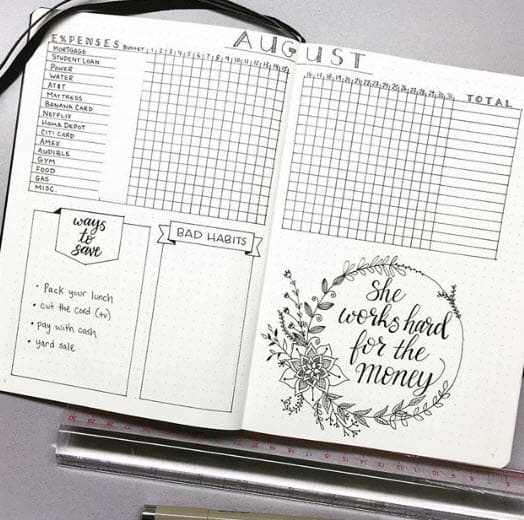 AUGUST
EXPENSES BUDGET 1 2 3 4 5 6 7 8 9 10 11 12 13 14 15
MORTGAGE
STUDENT LOAN
POWER
WATER
AT&T
MATTRESS
BANANA CARD
NETFLIX
HOME DEPOT
CITI CARD
AMEX
AUDIBLE
GYM
FOOD
GAS
MISC.
16 17 18 19 20 21 22 23 24 25 26 27 28 29 30 31 TOTAL
ways
to
save
• Pack your lunch
• cut the cord (tv)
• pay with cash
• yard sale
BAD HABITS
She
works hard
for the
Money